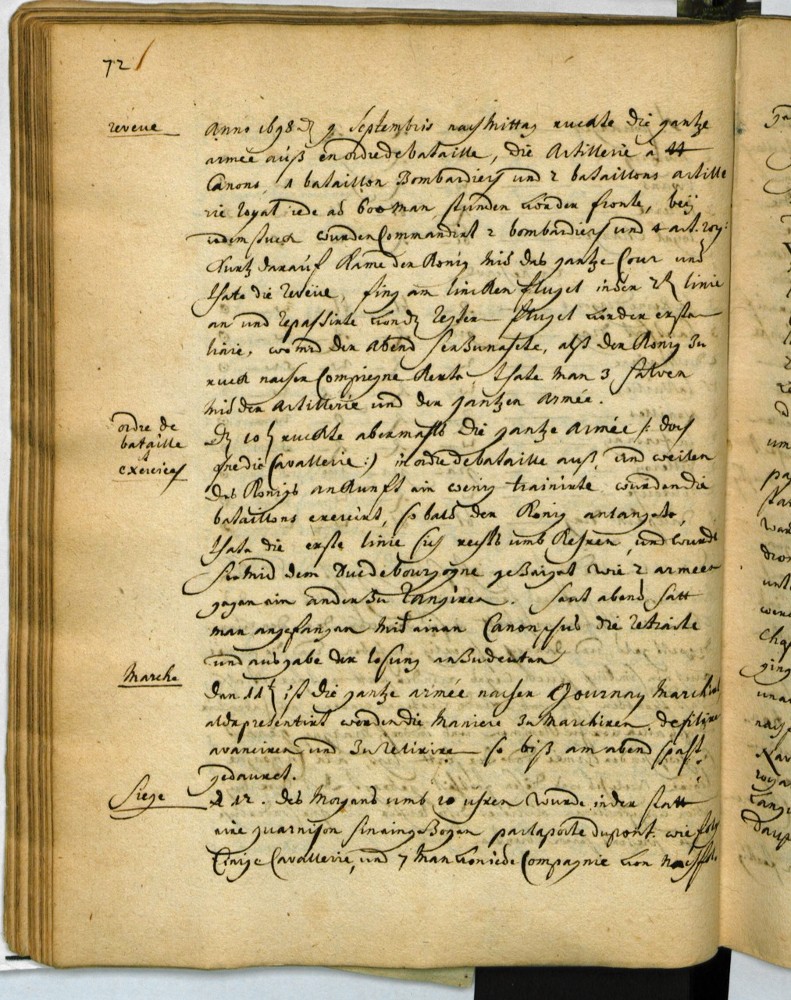 72
reveue
Anno 1698 d. 9 Septembris nachmittag ruckte die gantze
armée auß en ordre de bataille, die Artillerie à 44
Canons, 1 bataillon Bombardiers und 2 bataillons artille
rie royal jede ad 600 Man stunden vor der fronte, beÿ
jedem stuck wurden Commandirt 2 bombardiers und 4 art. roy:
Kurtz darauf kame der König mit das gantze Cour und
thate die reveüe, fing am lincken flugel in der 2t linie
an und repassirte von dem rechten flugel von der ersten
linie, der abend herbunahete, alß der König zu
ruck nacher Compiegne kerte, thate man 3 salven
mit der artillerie und der gantzen armée.
ordre de
bataille
&
exercices
D. 10t ruckte abermahls die gantze armée /: doch
ohne die Cavallerie :/ in ordre de bataille auß, und weilen
des Königs ankunft ein wenig trainirte, wurden die
bataillons exercirt, so bald der König anlangete,
thate die erste linie sich rechts umb kehren, und wurde
hiermit dem Duc de bourgogne gezaiget wie 2 armeen
gegen ein ander zu rangiren. Hart abend hatt
man angefangen mit einen Canonschus die retraite
und ausgabe der losung anzudeuten
Marche
Den 11t ist die gantze armée nacher Gournay marchirt
alda presentirt worden die maniere zu marchiren, defiliren
avanciren und zu retiriren so biß am abend spaht
gedauret.
Siege
D. 12. des Morgens umb 10 uhren wurde in der statt
eine guarnison hineingezogen par la porte du pont. wie
Einige Cavallerie, und 7 Man von jede Compagnie von